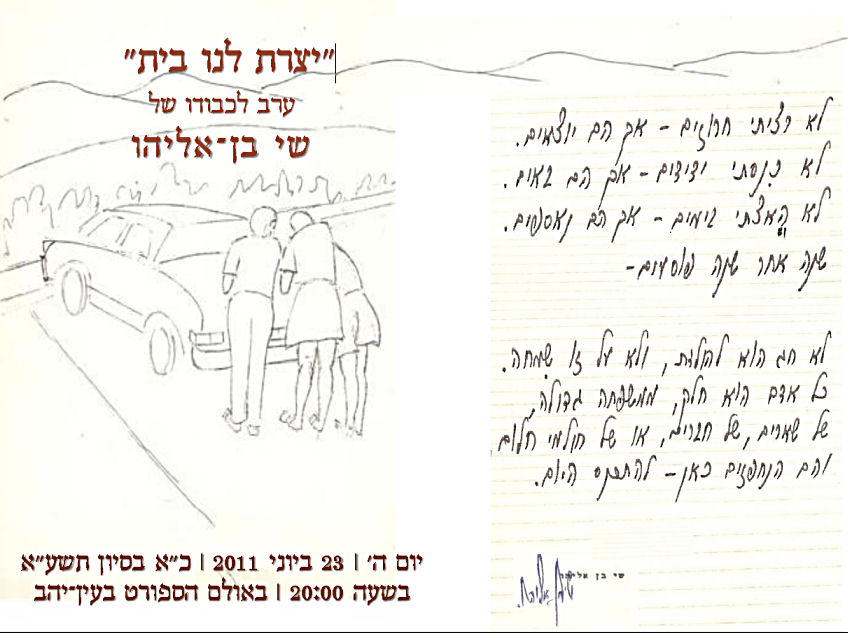 "יצרת לנו בית"
ערב לכבודו של
שי בן־אליהו
יום ה' | 23 ביוני 2011 | כ"א בסיון תשע"א
בשעה 20:00 | באולם הספורט בעין־יהב
לא רציתי חרוזים - אך הם יוצאים.
לא כינסתי ידידים - אך הם באים.
לא האצתי בימים - אך הם נאספים.
שנה אחר שנה פוסעים -
לא חג הוא להולדת, ולא על זו שמחה.
כל אדם הוא חלק, ממשפחה גדולה,
של שארים, של חברים, או של חולמי חלום
והם הנחפזים כאן - להתכנס היום.
שי בן אליהו